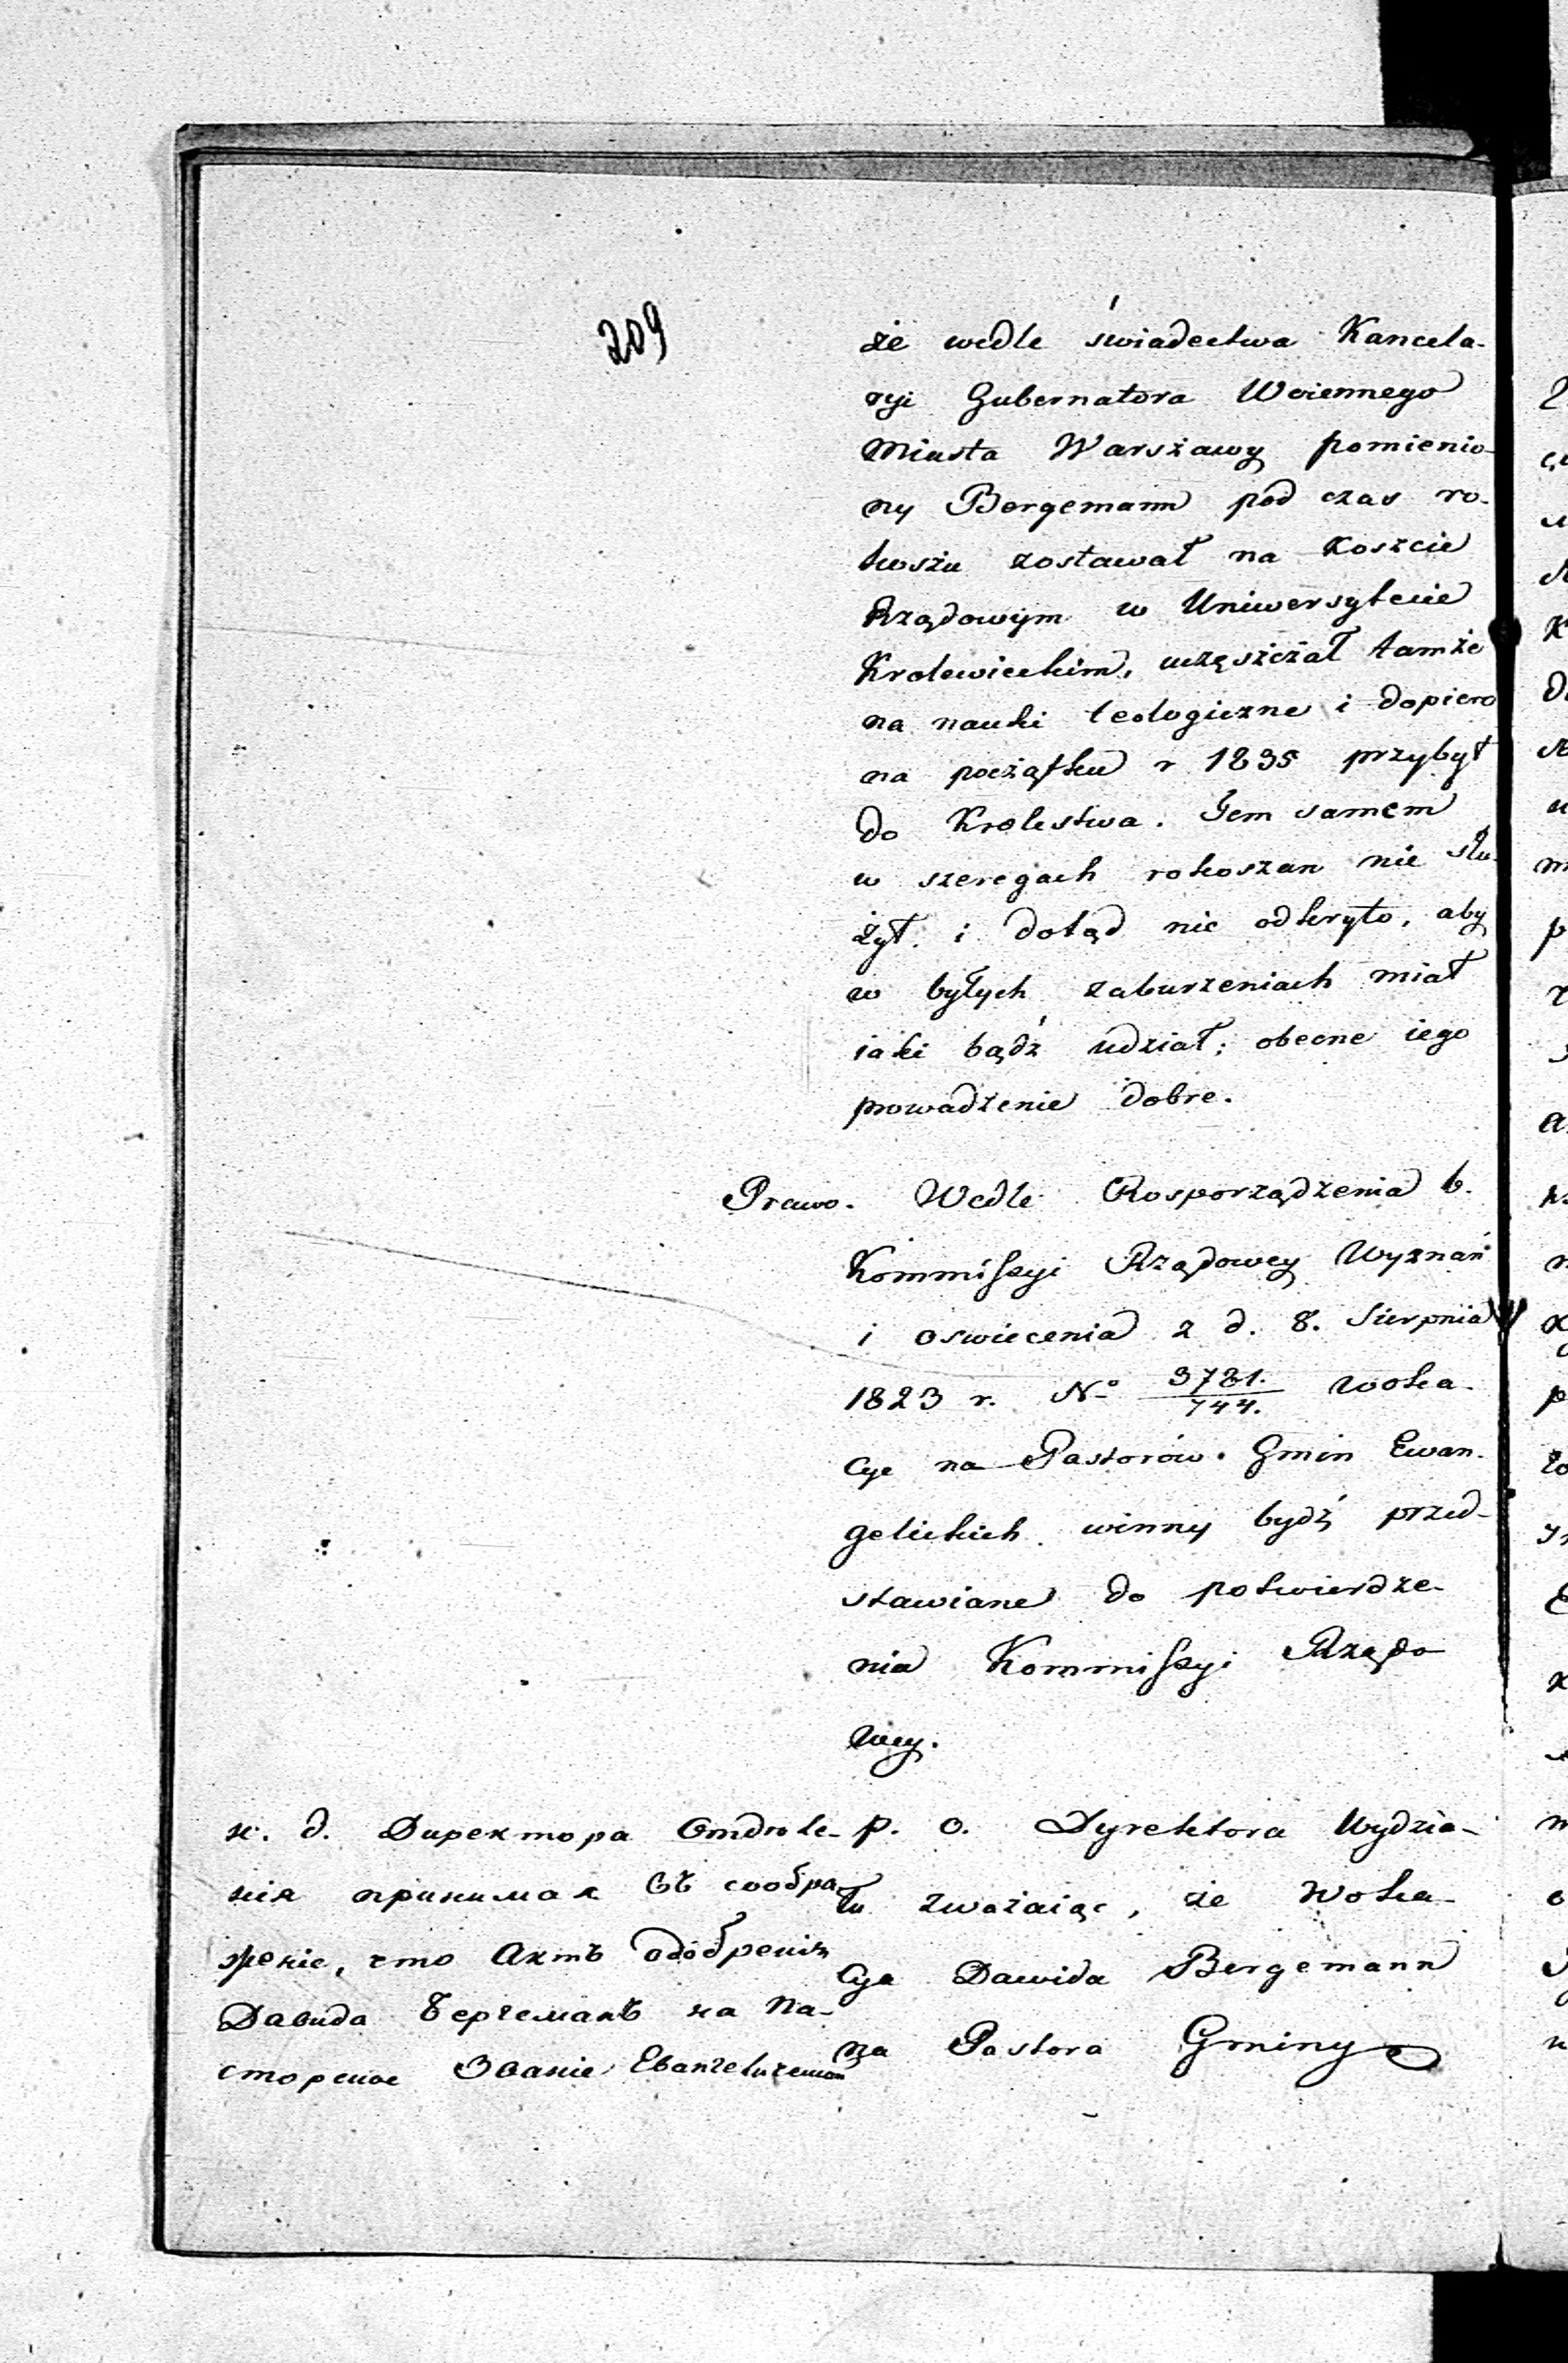 209
że wedle świadectwa Kancela-
ryi Gubernatora Woiennego
Miasta Warszawy pomienio-
ny Bergemann pod czas ro-
koszu zostawał na Koszcie
Rządowym w Uniwersytecie
Krolewieckim, uczęszczał tamże
na nauki teologiczne i dopiero
na początku r 1835 przybył
do Krolestwa. Tem samem
w szeregach rokoszan nie słu-
żył. i dotąd nie odkryto, aby
w byłych zaburzeniach miał
iaki bądź udział; obecne iego
prowadzenie dobre.
Prawo. Wedle Rosporządzenia b.
Kommissyi Rządowey Wyznań
i oswiecenia z d. 8. Sierpnia
1823 r. No 3781./744. woka-
cye na Pastorów Gmin Ewan-
gelickich winny bydź przed-
stawiane do potwierdze-
nia Kommissyi Rządo
wey.
и. д. Директора Отдѣле-
нія принимая въ сообра-
женіе, что Актъ одобренія
Давида Бергеманъ на Па-
сторское Званіе Евангелическ
p. o. Dyrektora Wydzia-
łu zważaiąc, że Woka-
cya Dawida Bergemann
na Pastora Gminy